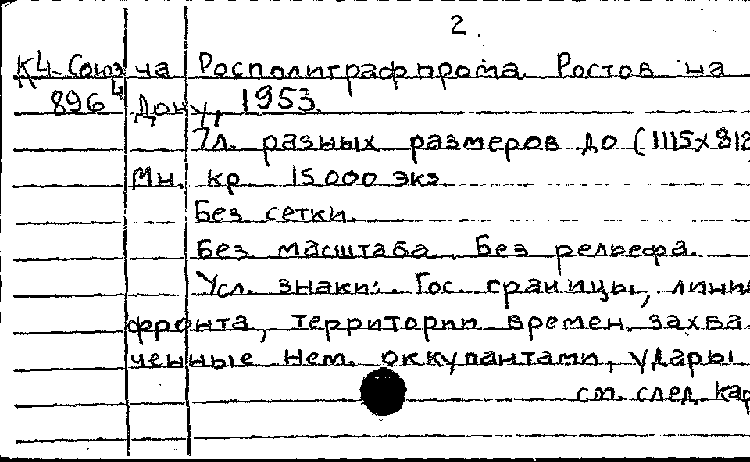 2.
К4-Союз на Росполиграфпрома. Ростов на
896⁴ Дону, 1953.
7л. разных размеров до (1115х812
Мн. кр 15.000 экз.
Без сетки.
Без масштаба. Без рельефа.
Усл. знаки: Гос. границы, лини
фронта, территории времен. захва
ченные нем. оккупантами, удары
см. след. кар